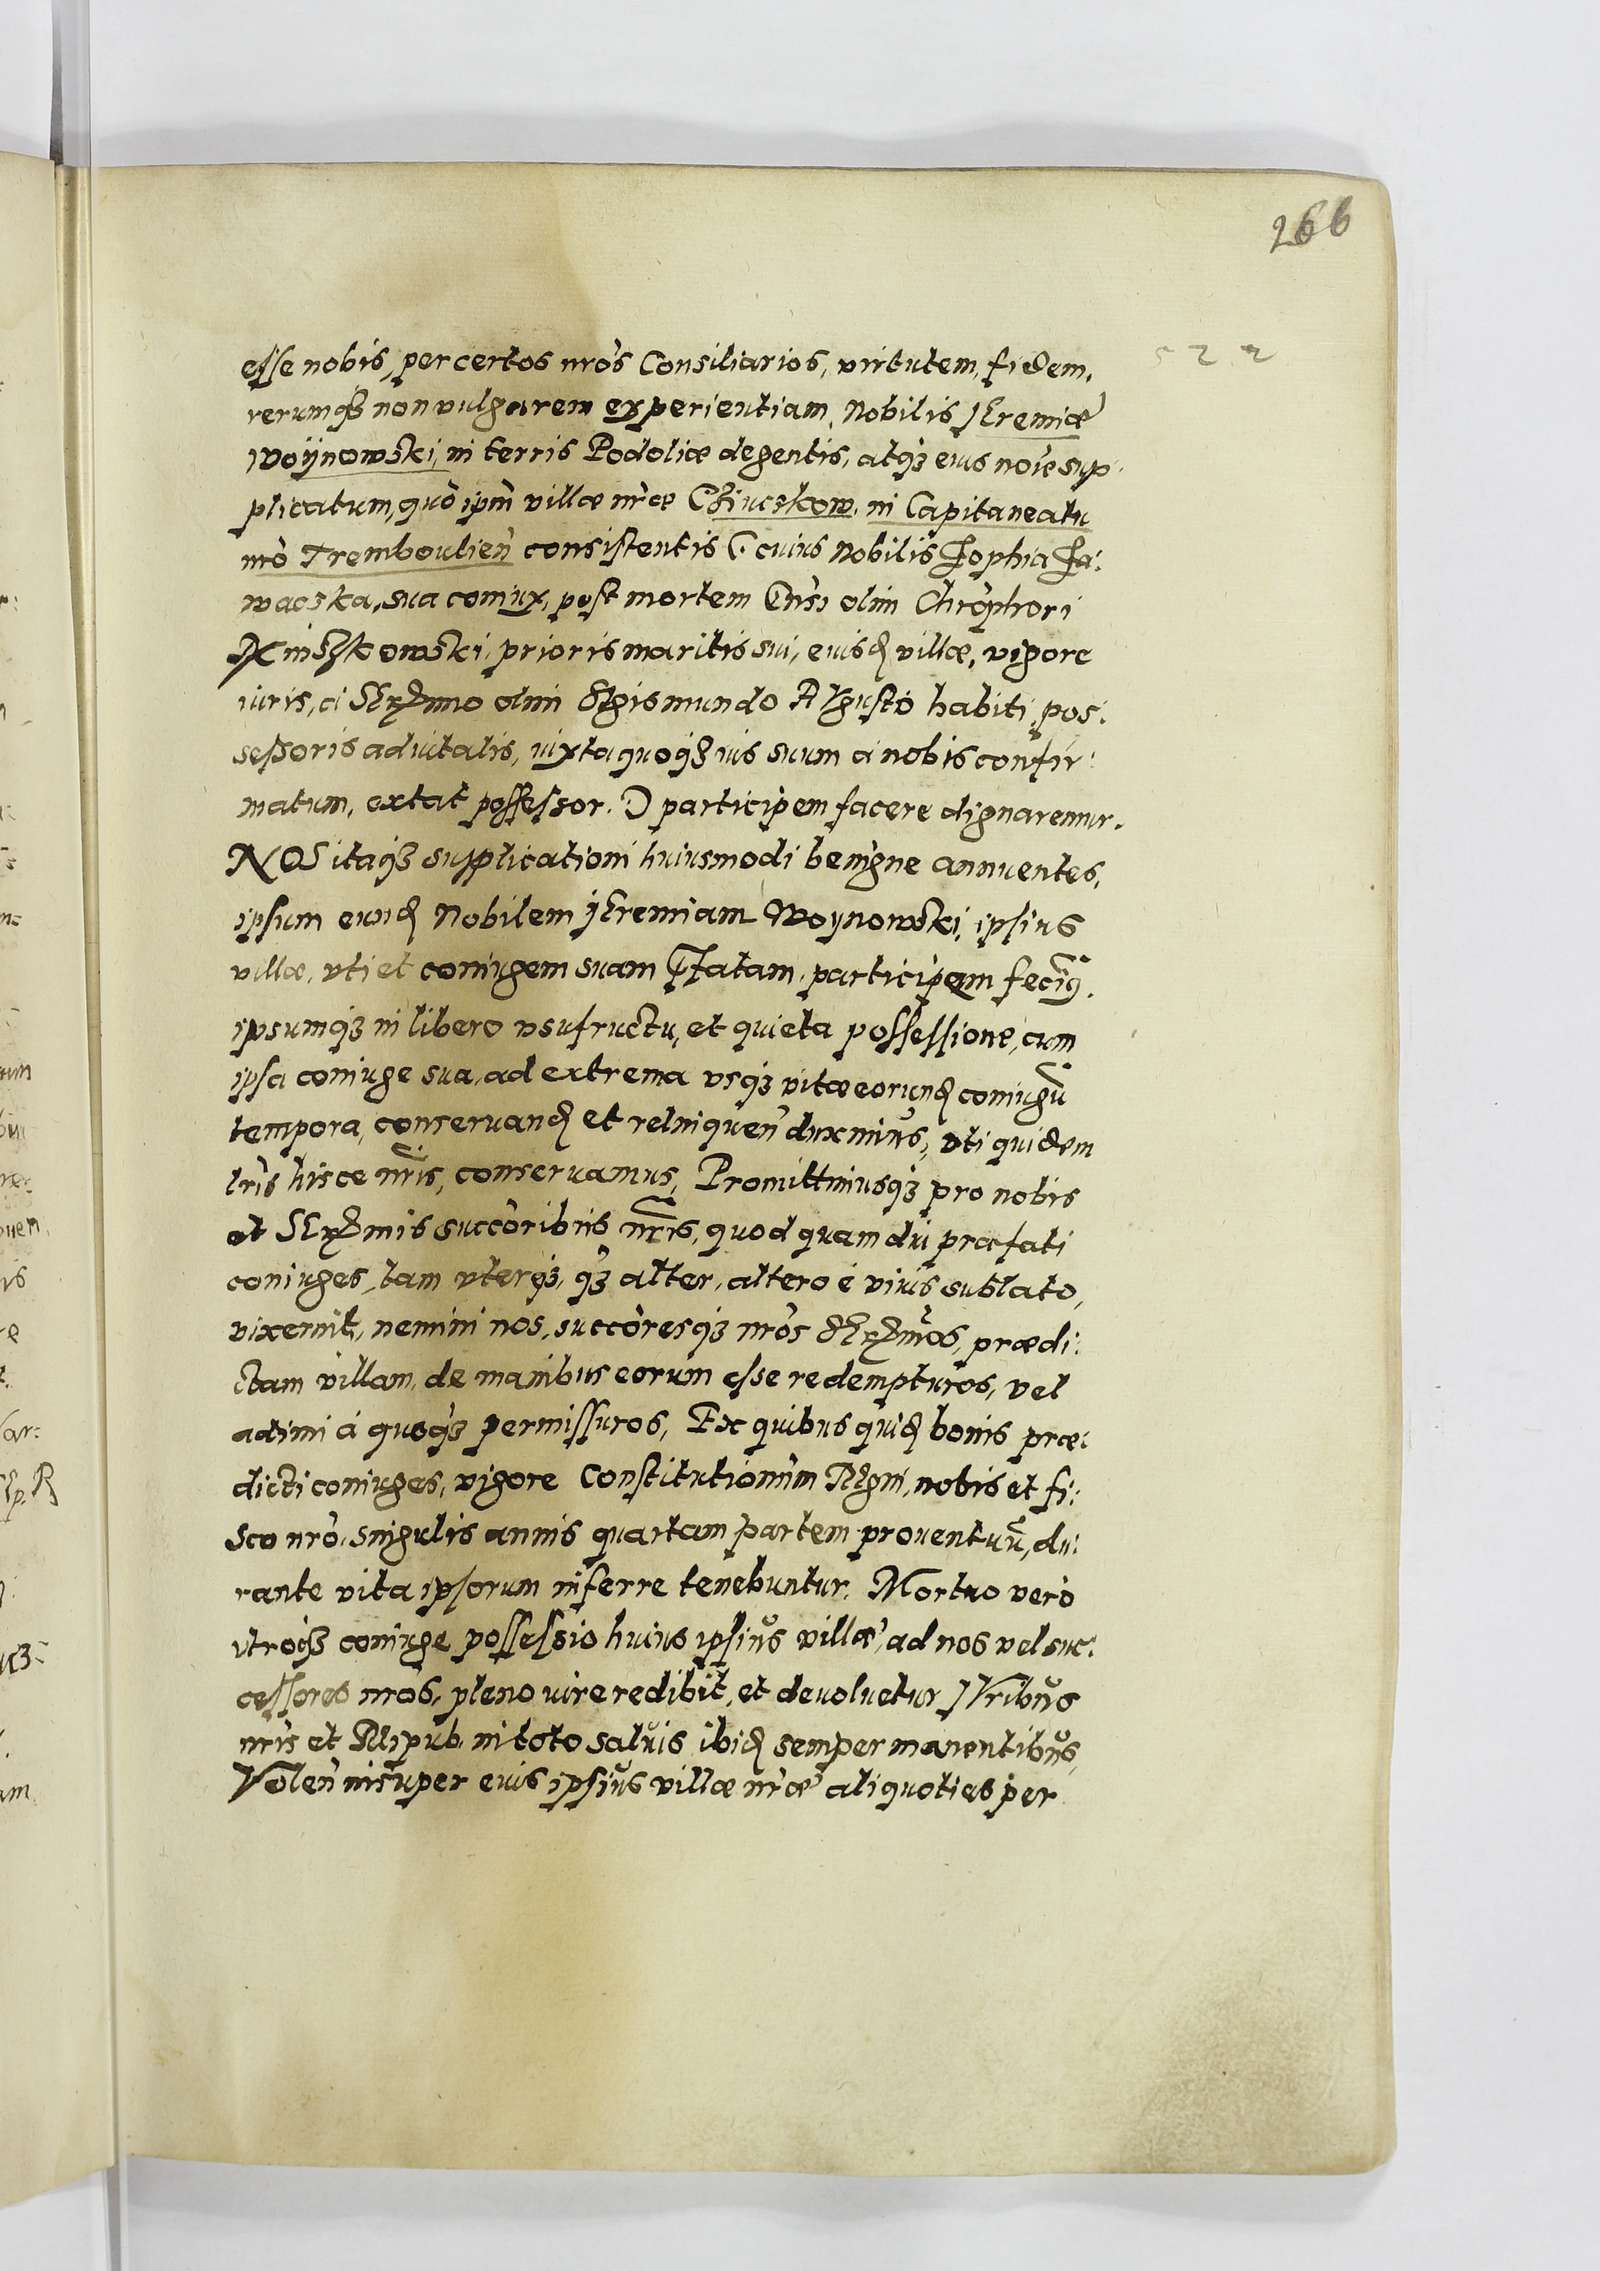 266
522
esse nobis, per certos nros Consiliarios, virtutem, fidem,
rerumq3 non vulgarem experientiam, Nobilis JEremiæ
Woÿnowski, in terris Podoliæ degentis, atq3 eius noie sup-
plicatum, quò ipm villæ nræ Chiuczkow, in Capitaneatu
nrò Tremboulien consistentis (cuius Nobilis Zophia Za:
waczka, sua coniux, post mortem Gnsi olim Chrophori
Kiniszkowski, prioris mariti sui, eiusd villæ, vigore
iuris, à SErmo olim SIgismundo AVgusto habiti, pos:
sessoris aduitalis, iuxta quoq3 ius suum à nobis confir:
matum, extat possessor.) participem facere dignaremur.
NOS itaq3 supplicationi huiusmodi benigne annuentes,
ipsum eund Nobilem JEremiam Woynowski, ipsius
villæ, vti et coniugem suam pfatam, participem fecim9,
ipsumq3 in libero vsufructu, et quieta possessione, cum
ipsa coniuge sua, ad extrema vsq3 vitæ eorund coniugũ
tempora, conseruand et relinquen duximus, vti quidem
lris hisce nris, conseruamus, Promittimusq3 pro nobis
et SErmis succoribus nris, quod quam diu præfati
coniuges, tam vterq3, q3 alter, altero è viuis sublato,
vixerint, nemini nos, succoresq3 nros SErmos, prædi:
ctam villam, de manibus eorum esse redempturos, vel
adimi à quoq3 permissuros, Ex quibus quid bonis præ:
dicti coniuges, vigore Constitutionum REgni, nobis et fi:
sco nro, singulis annis quartam partem prouentuũ, du:
rante vita ipsorum inferre tenebuntur. Mortuo verò
vtroq3 coniuge, possessio huius ipsius villæ, ad nos vel suc:
cessores nros, pleno iure redibit, et deuoluetur JVribus
nris et REipub. in toto saluis ibid semper manentibus,
Volen insuper eius ipsius villæ nræ aliquoties per